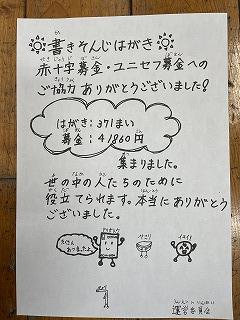 書きそんじはがき
赤十字募金・ユニセフ募金への
ご協力 ありがとうございました!
はがき:371まい
募金:41860円
集まりました。
世の中の人たちのために
役立てられます。本当にありがとう
ございました。
運営委員会